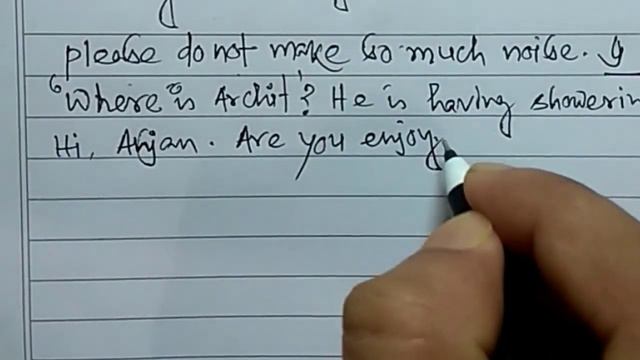 please do not make so much noise. I
"Where is Archit? He is having showerin
Hi, Anjan. Are you enjoy